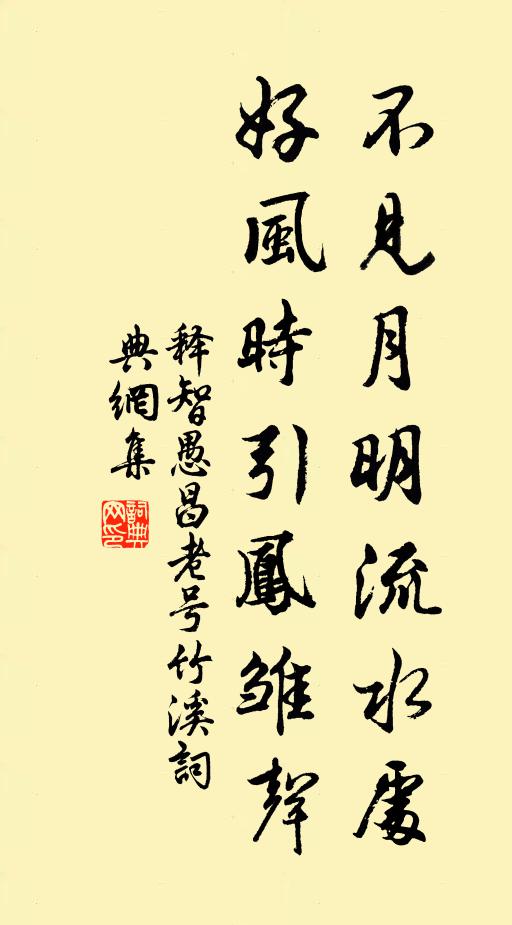 不見月明流水處
好風時引鳳雏聲
释智愚昌老号竹溪詞
典網集
詞典
网印